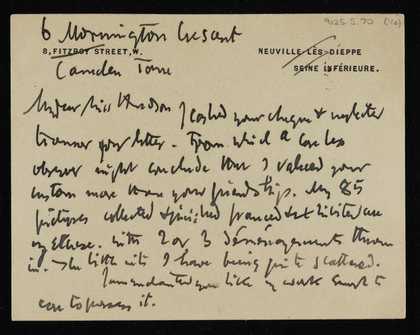 9125.5.70 (10)
6 Mornington Crescent
8, FITZROY STREET, W.
NEUVILLE-LÈS-DIEPPE
SEINE INFÉRIEURE.
Camden Town
My dear Miss Hudson I cashed your cheque & neglected
to answer your letter. From which a careless
observer might conclude that I valued your
custom more than your friendship. My 85
pictures collected & finished framed & exhibited are
my excuse. with 2 or 3 déménagements thrown
in. The little wits I have being quite scattered.
I am enchanted you like my work enough to
care to possess it.